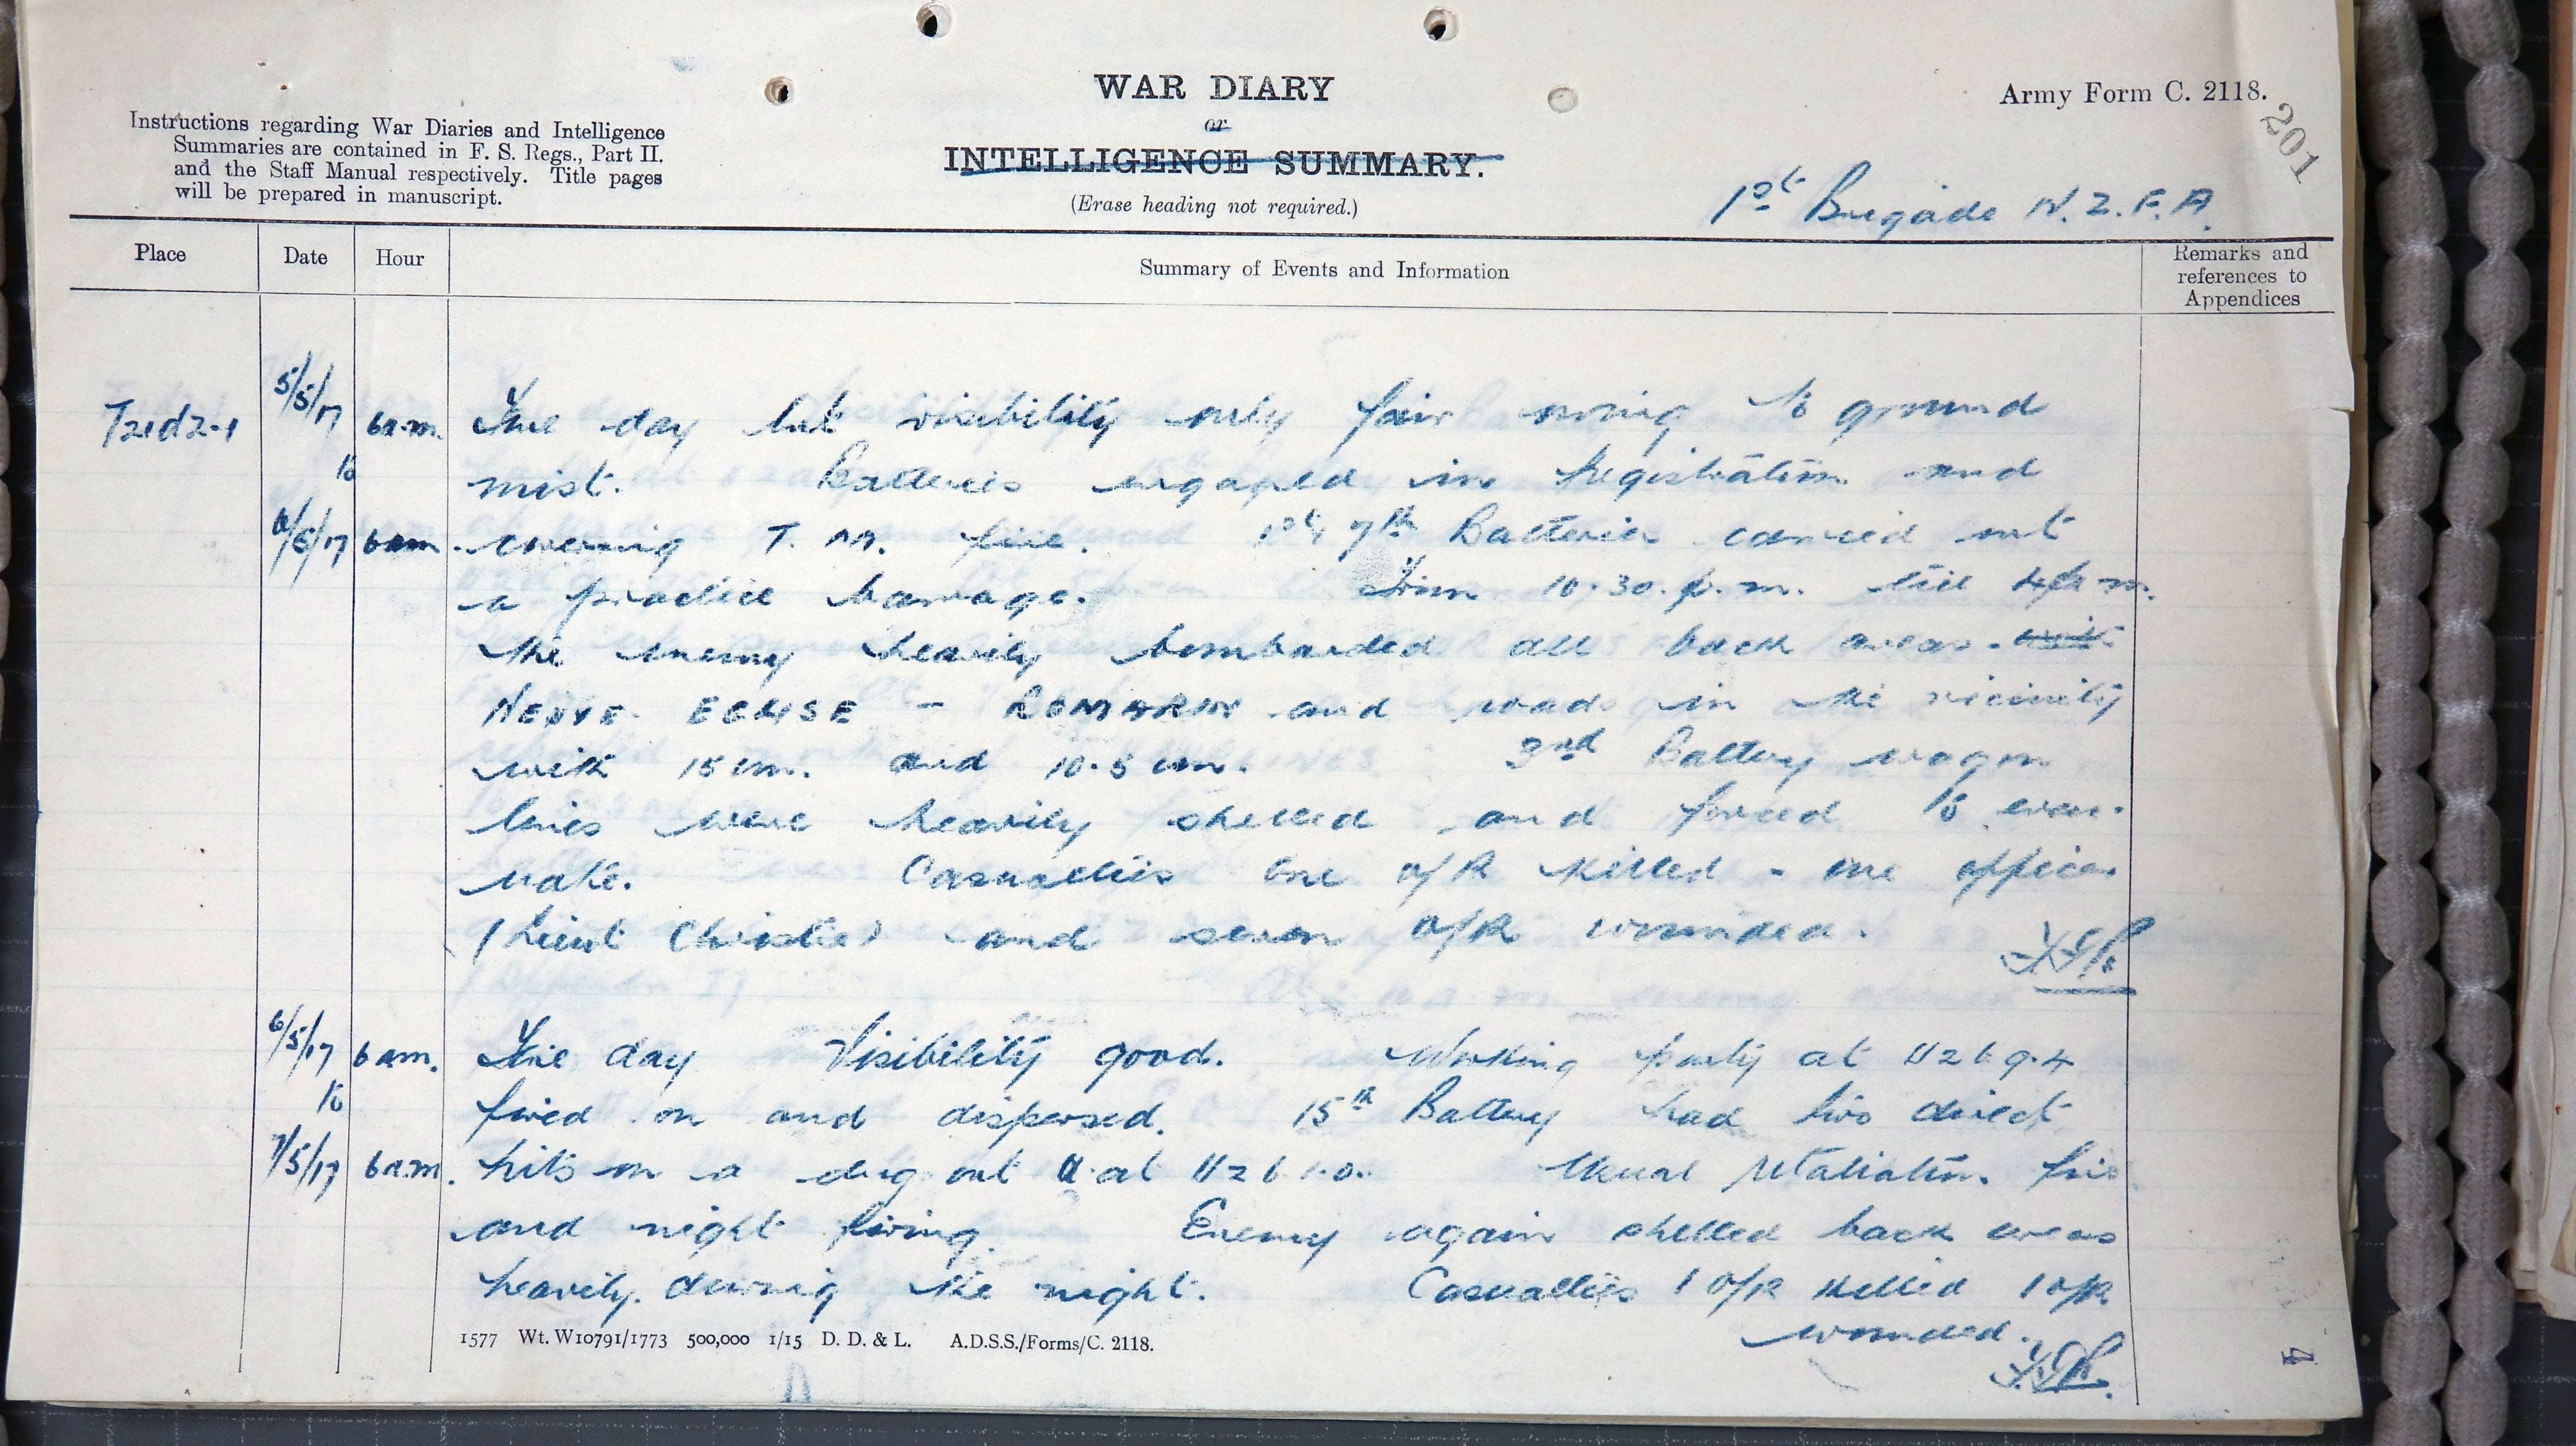 WAR DIARY
or
INTELLIGENCE SUMMARY.
(Erase heading not required.)
Army Form C. 2118.
201
Instructions regarding War Diaries and Intelligence
Summaries are contained in F. S. Regs., Part II.
and the Staff Manual respectively. Title pages
will be prepared in manuscript.
1st Brigade N.Z.F.A.
Place Date Hour Summary of Events and Information Remarks and references to Appendices
T21d2.1 5/5/17 6a.m. Fine day but visibility only fair owing to ground
to mist. Batteries engaged in registration and
6/5/17 6am. covering T.M. fire. 1st & 7th Batteries carried out
a practice barrage. From 10.30.p.m. till 4a.m.
the enemy heavily bombarded all back areas. with
NEUVE EGLISE - ROMARIN and roads in the vicinity
with 15cm. and 10.5cm. 3rd Battery wagon
lines were heavily shelled and forced to evac-
uate. Casualties One o/R killed - one officer
(Lieut Christie) and seven o/R wounded.
6/5/17 6am. Fine day Visibility good. Working party at U2b9.4
to fired on and dispersed. 15th Battery had two direct
7/5/17 6a.m. hits on a dug out at U2b1.0. Usual retaliation fire
and night firing. Enemy again shelled back areas
heavily during the night. Casualties 1 O/R killed 1 o/R
wounded.
1577 Wt. W10791/1773 500,000 1/15 D. D. & L. A.D.S.S./Forms/C. 2118.
4